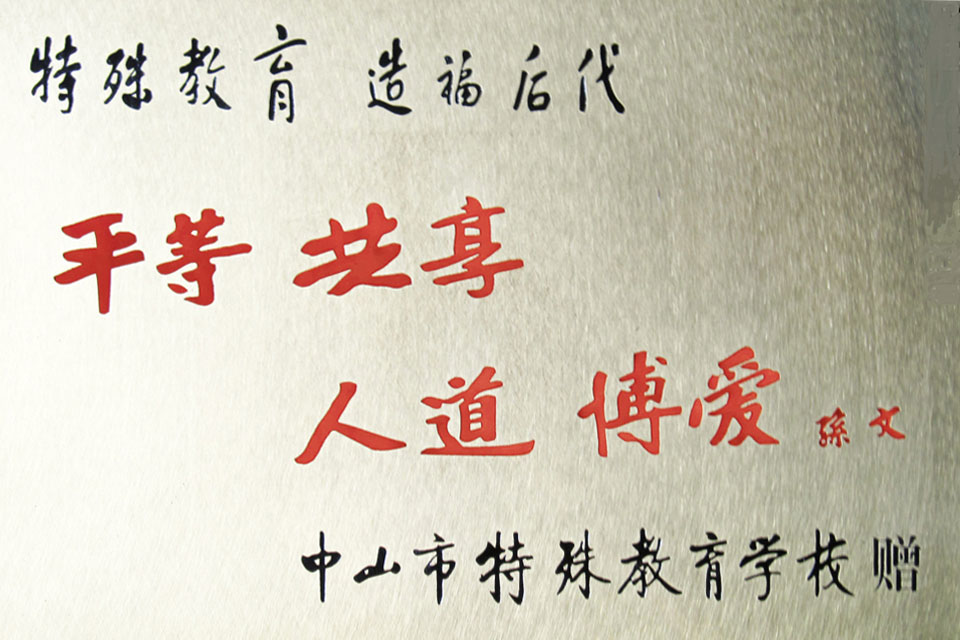 特殊教育 造福后代
平等 共享
人道 博爱 孫文
中山市特殊教育学校赠